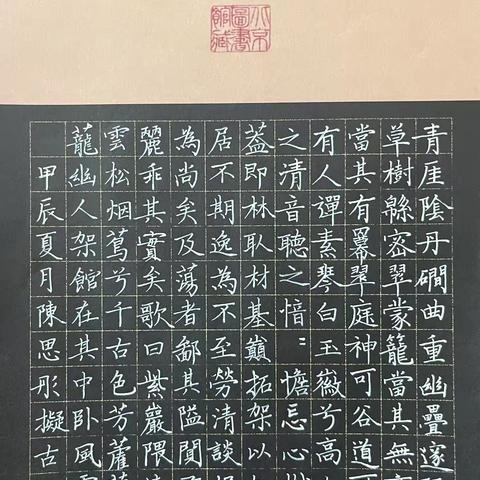 北京
圖書
館藏
青厓陰丹磵曲重幽疊邃
草樹緜密翠蒙籠當其無
當其有羃翠庭神可谷道
有人彈素琴白玉徽兮高
之清音聽之愔〻憺忘心
葢即林取材基巔拓架以
居不期逸為不至勞清談
為尚矣及蕩者鄙其隘閴
麗乖其實矣歌曰紫巖隈
雲松烟蔦兮千古色芳藿
蘢幽人架館在其中卧風
甲辰夏月陳思彤擬古